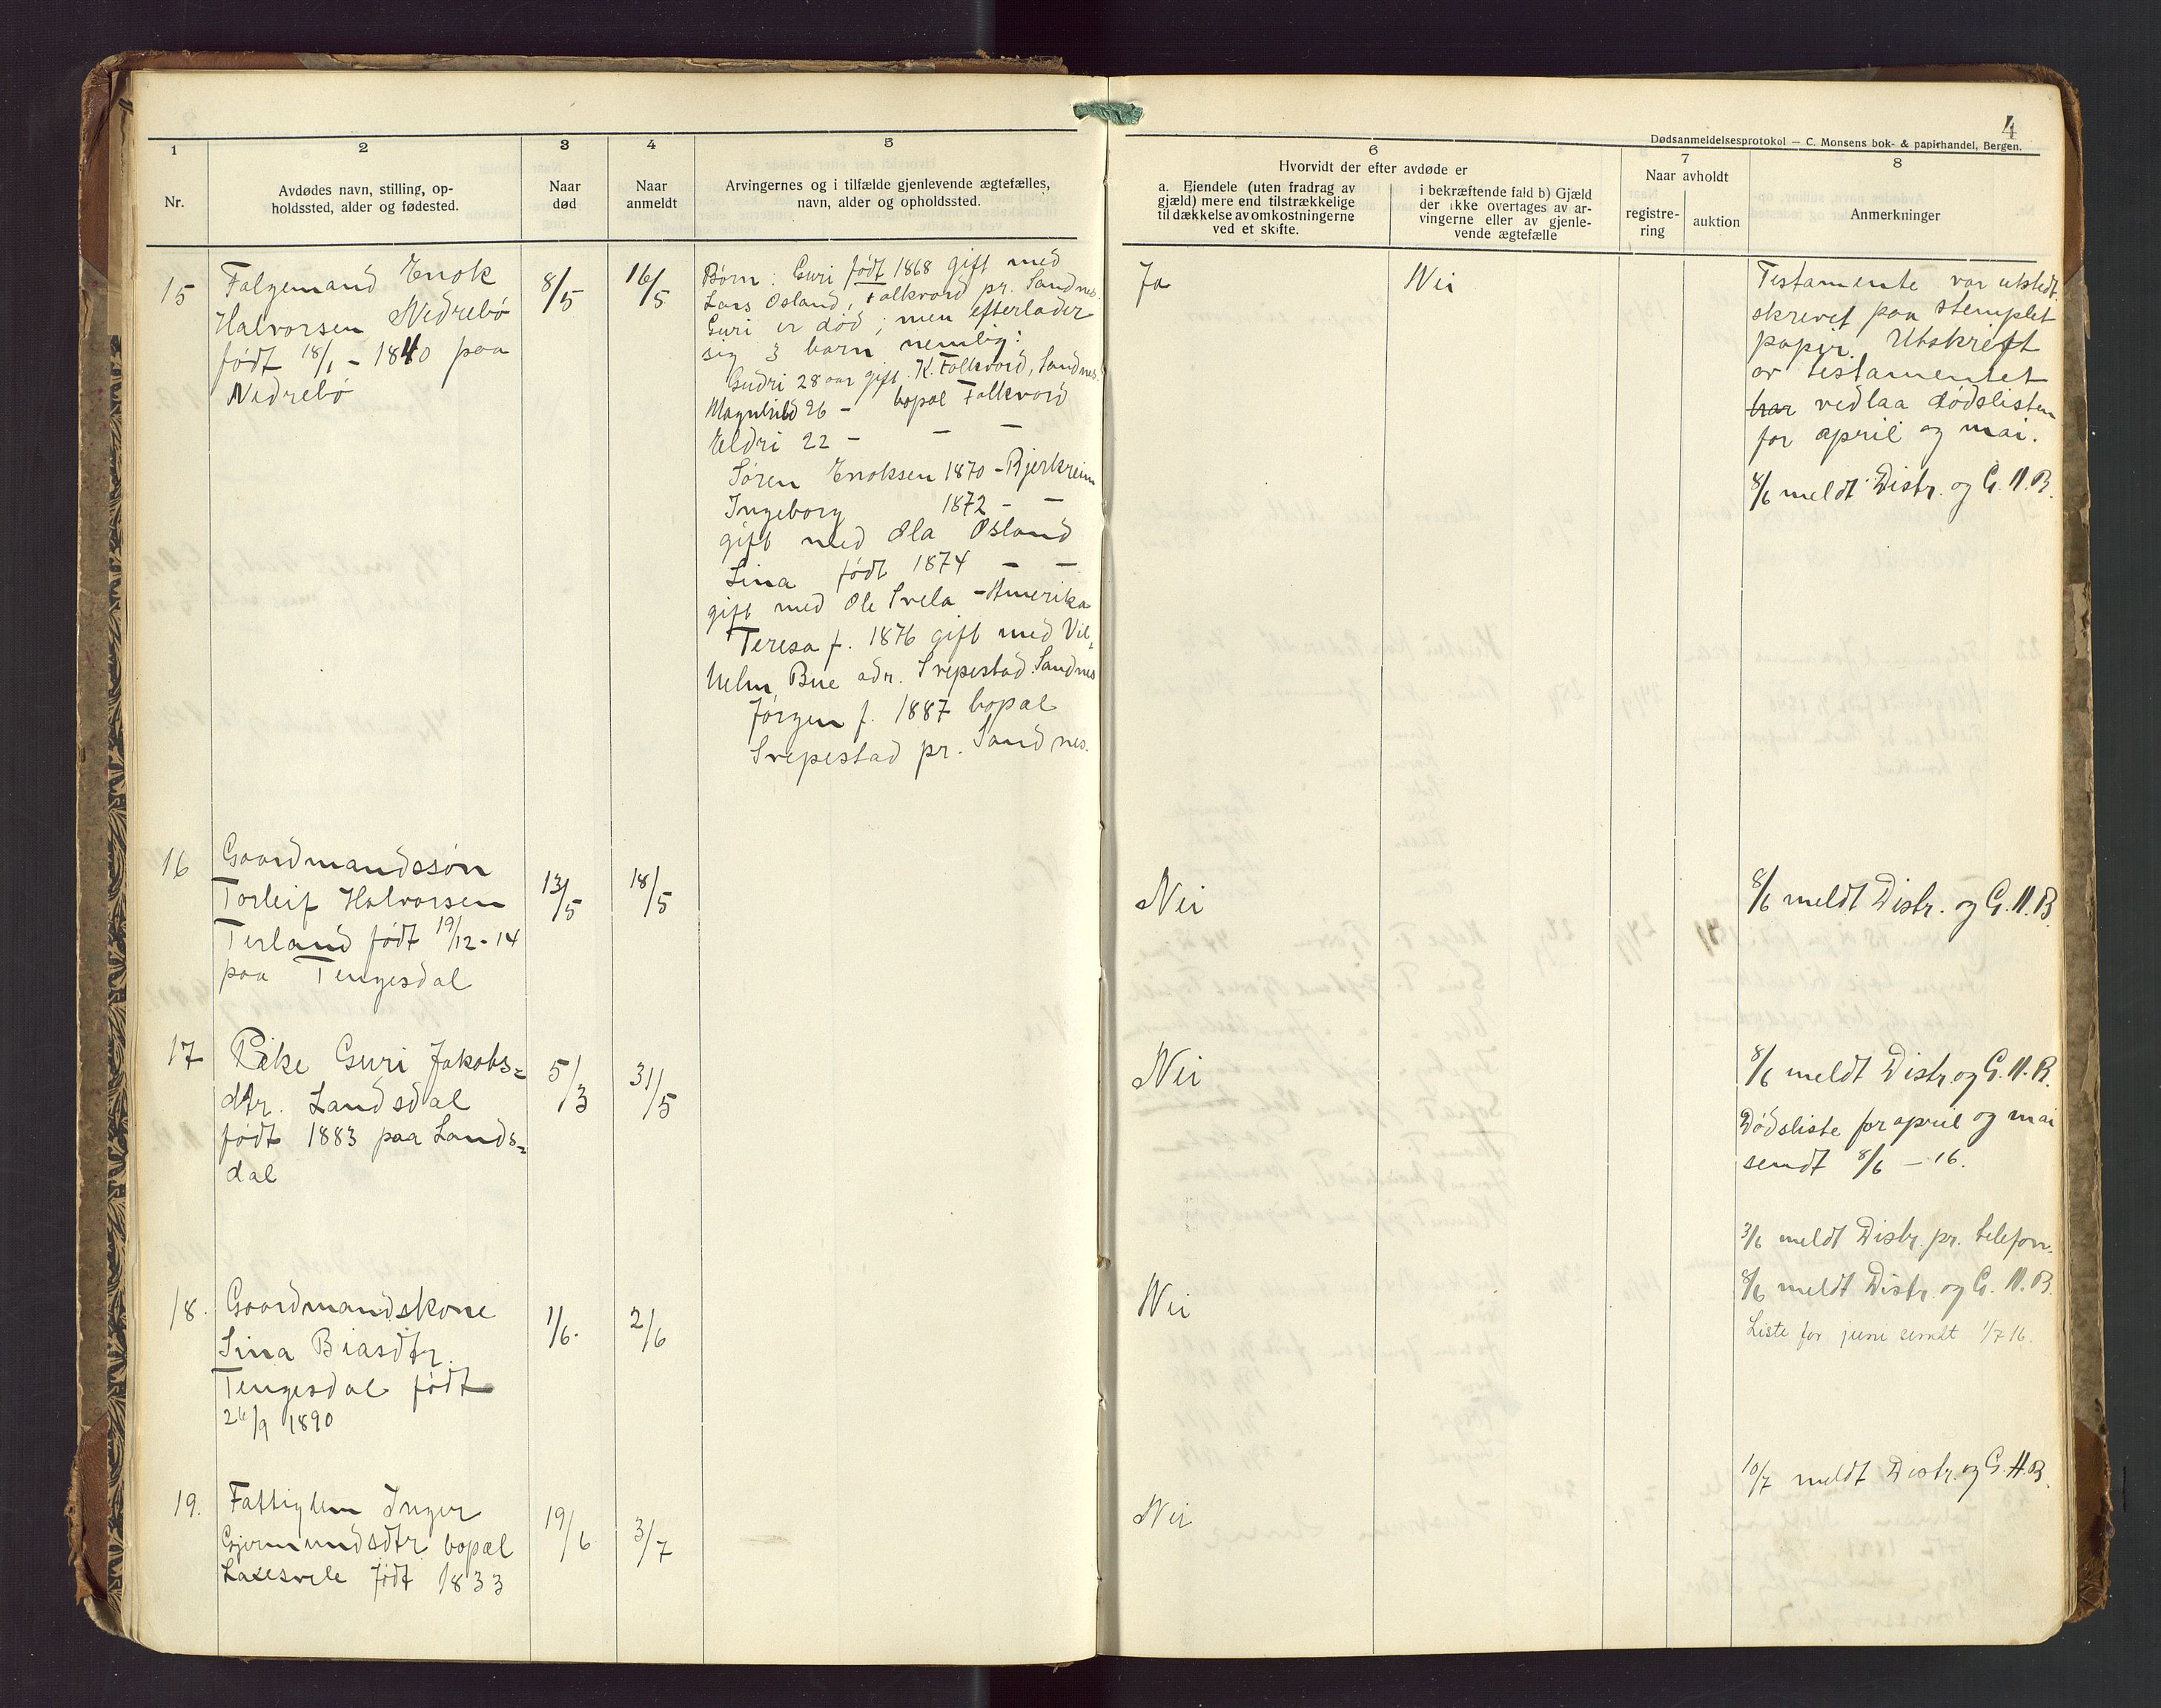 4
Dødsanmeldelsesprotokol — C. Monsens bok- & papirhandel, Bergen.
1
2
3
4
5
6
7
8
Nr.
Avdødes navn, stilling, op-
holdssted, alder og fødested.
Naar
død
Naar
anmeldt
Arvingernes og i tilfælde gjenlevende ægtefælles,
navn, alder og opholdssted.
Hvorvidt der efter avdøde er
a. Eiendele (uten fradrag av
gjæld) mere end tilstrækkelige
til dækkelse av omkostningerne
ved et skifte.
i bekræftende fald b) Gjæld
der ikke overtages av ar-
vingerne eller av gjenle-
vende ægtefælle
Naar avholdt
registre-
ring
auktion
Anmerkninger
15
Folgemand Enok
Halvorsen Nedrebö
født 18/1 - 1840 paa
Nedrebö
8/5
16/5
Børn: Guri født 1868 gift med
Lars Osland, Folkvord pr. Sandnes.
Guri er död; men efterlader
sig 3 barn nemlig:
Gudri 28 aar gift. K. Folkvord, Sandnes.
Magnhild 26 - bopæl Folkvord
Eldri 22 - - -
Sören Enoksen 1870 - Bjerkreim
Ingeborg 1872 - -
gift med Ola Osland
Lina født 1874 - -
gift med Ole Svela - Amerika
Teresa f. 1876 gift med Vil-
helm Bue adr. Svepestad Sandnes
Jörgen f. 1887 bopæl
Svepestad pr. Sandnes.
Ja
Nei
Testamente var utstedt.
skrevet paa stemplet
papir. Utskrift
av testamentet
har vedlaa dödslisten
for april og mai.
8/6 meldt Distr. og G.H.B.
16
Gaardmandssön
Torleif Halvorsen
Terland født 19/12-14
paa Tengesdal
13/5
18/5
Nei
8/6 meldt Distr. og G.H.B
17
Pike Guri Jakobs=
dtr. Landsdal
født 1883 paa Lands=
dal
5/3
31/5
Nei
8/6 meldt Distr. og G.H.B.
Dödsliste for april og mai
sendt 8/6 - 16.
3/6 meldt Distr. pr. telefon.
18.
Gaardmandskone
Sina Biasdtr.
Tengesdal født
26/9 1890
1/6.
2/6
Nei
8/6 meldt Distr. og G.H.B.
Liste for juni sendt 1/7 16.
19.
Fattiglem Inger
Gjermundsdtr bopæl
Laxesvele født 1833
19/6
3/7
Nei
10/7 meldt Distr. og G.H.B.